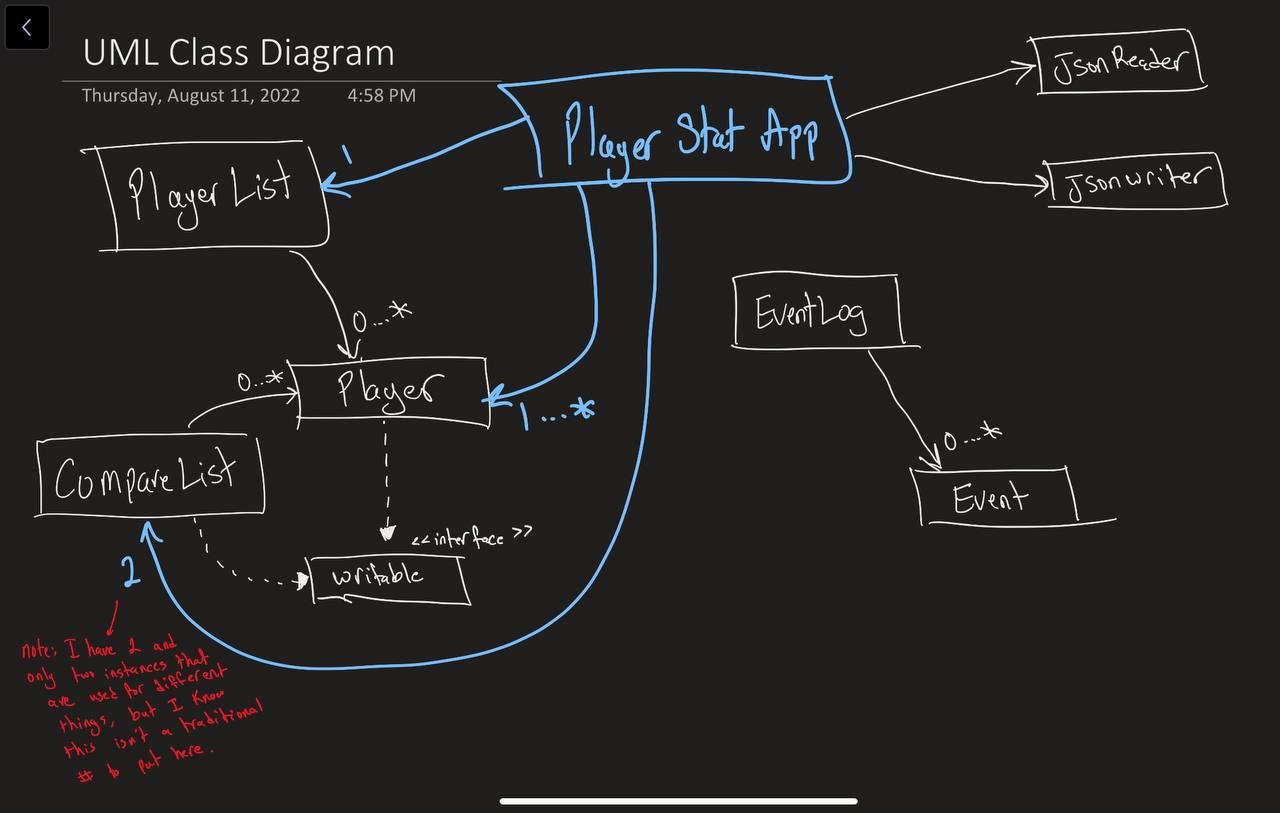 UML Class Diagram
Thursday, August 11, 2022 4:58 PM
Player Stat App
JsonReader
Jsonwriter
1
Player List
0...*
EventLog
0...*
Player
1...*
0...*
Event
CompareList
<<interface>>
writable
2
note: I have 2 and
only two instances that
are used for different
things, but I know
this isn't a traditional
# to put here.